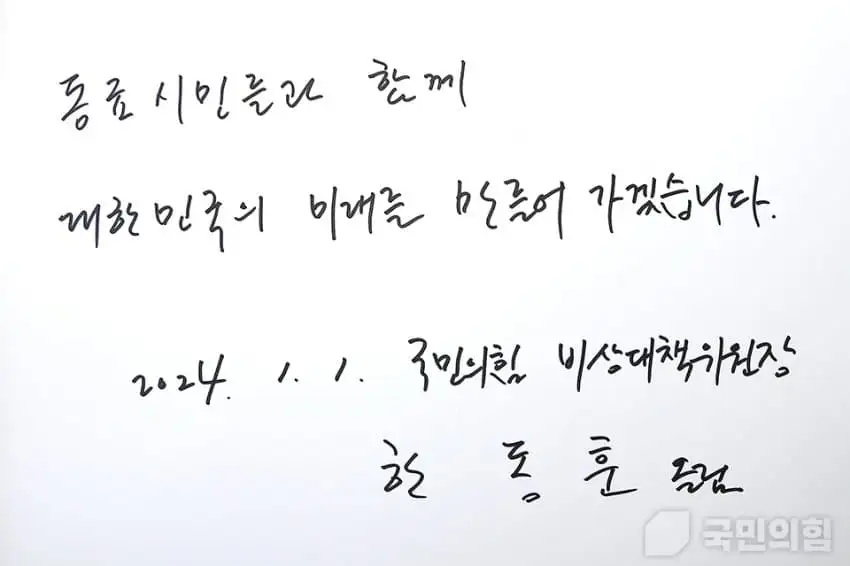 동료시민들과 함께
대한민국의 미래를 만들어 가겠습니다.
2024. 1. 1. 국민의힘 비상대책위원장
한 동 훈 올림
국민의힘